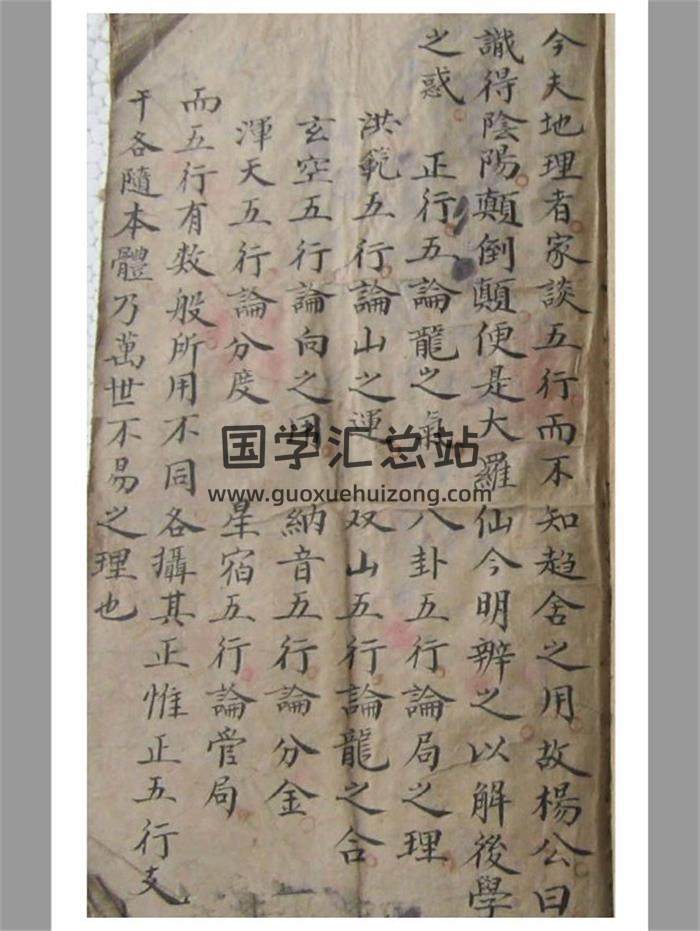 今夫地理者家談五行而不知趋舍之用故楊公曰
識得陰陽顛倒顛便是大羅仙今明辨之以解後學
之惑
正行五論龍之氣 八卦五行論局之理
洪範五行論山之運 双山五行論龍之合
玄空五行論向之用 納音五行論分金
渾天五行論分度 星宿五行論管局
而五行有数般所用不同各攝其正惟正五行支
干各隨本體乃萬世不易之理也
国学汇总站
www.guoxuehuizong.com